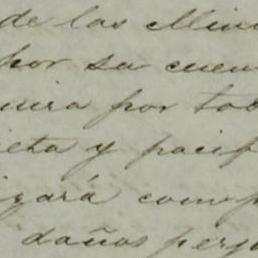 de las Min
por su cuen
mira por to
ieta y pacif
igará comp
daños perj